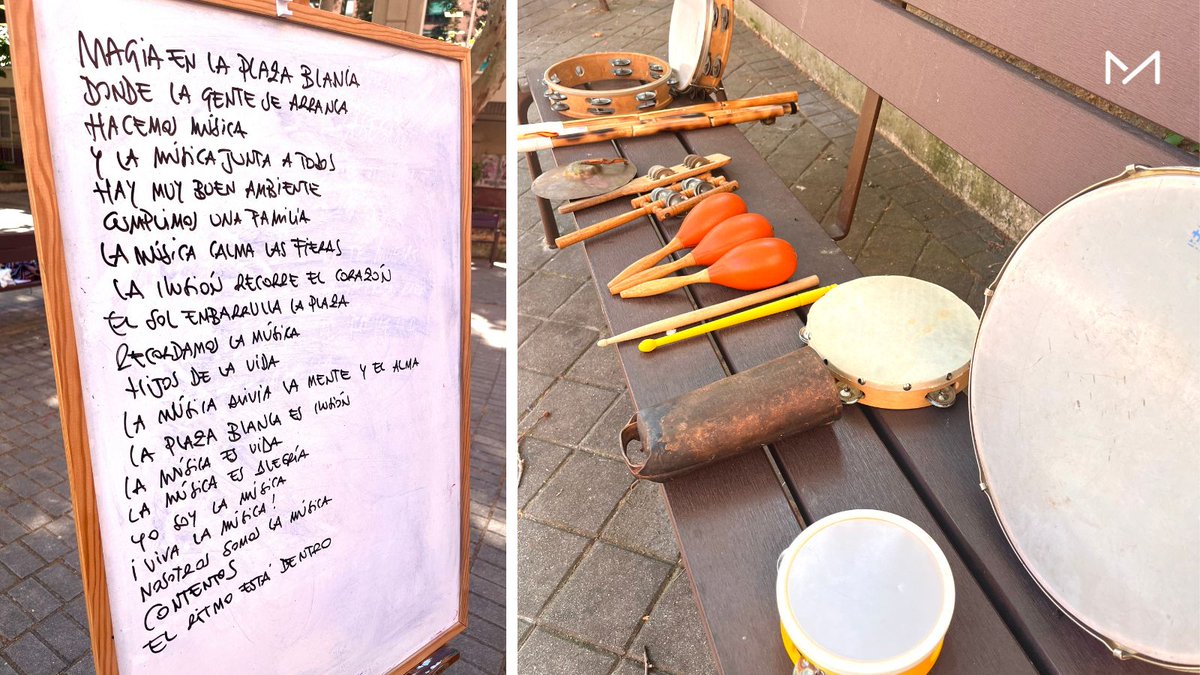 MAGIA EN LA PLAZA BLANCA
DONDE LA GENTE SE ARRANCA
HACEMOS MÚSICA
Y LA MÚSICA JUNTA A TODOS
HAY MUY BUEN AMBIENTE
CUMPLIMOS UNA FAMILIA
LA MÚSICA CALMA LAS FIERAS
LA ILUSIÓN RECORRE EL CORAZÓN
EL SOL EMBARRULLA LA PLAZA
RECORDAMOS LA MÚSICA
HIJOS DE LA VIDA
LA MÚSICA ALIVIA LA MENTE Y EL ALMA
LA PLAZA BLANCA ES ILUSIÓN
LA MÚSICA ES VIDA
LA MÚSICA ES ALEGRÍA
YO SOY LA MÚSICA
¡VIVA LA MÚSICA!
NOSOTROS SOMOS LA MÚSICA
CONTENTOS
EL RITMO ESTÁ DENTRO